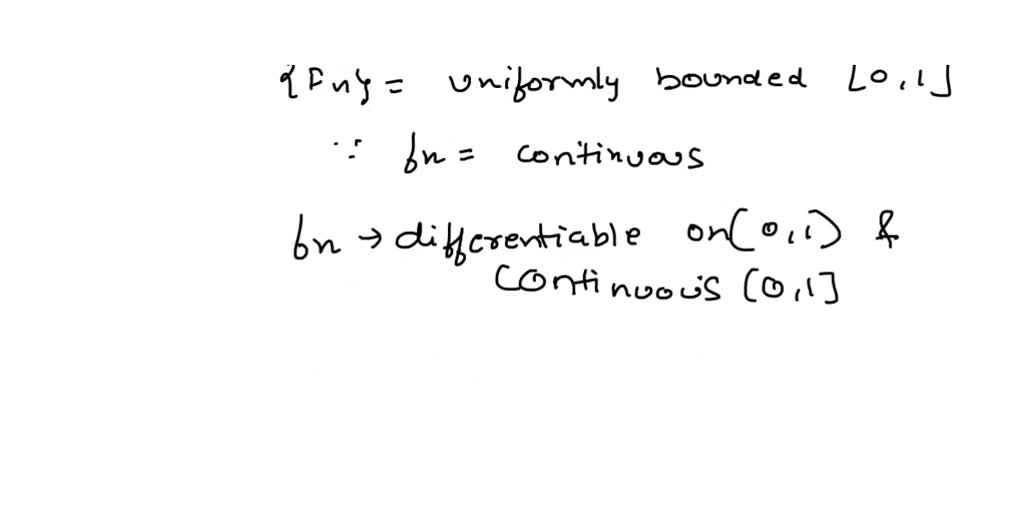 {Fn} = uniformly bounded [0,1]
∵ fn = continuous
fn → differentiable on (0,1) &
continuous [0,1]